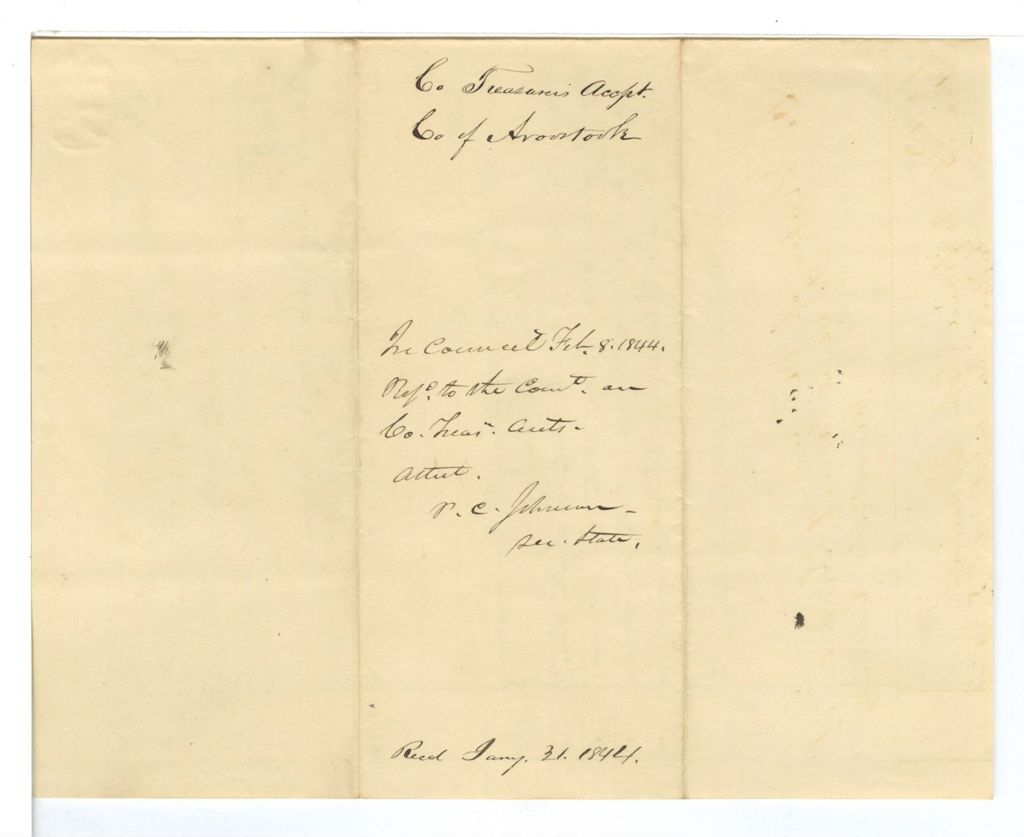 Co Treasurer's Accpt.
Co of Aroostook
In Council Feb. 8. 1844.
Refd. to the Comt. on
Co. Treas. Accts.
Attest.
P. C. Johnson
Sec. State.
Recd Jany. 31. 1844.